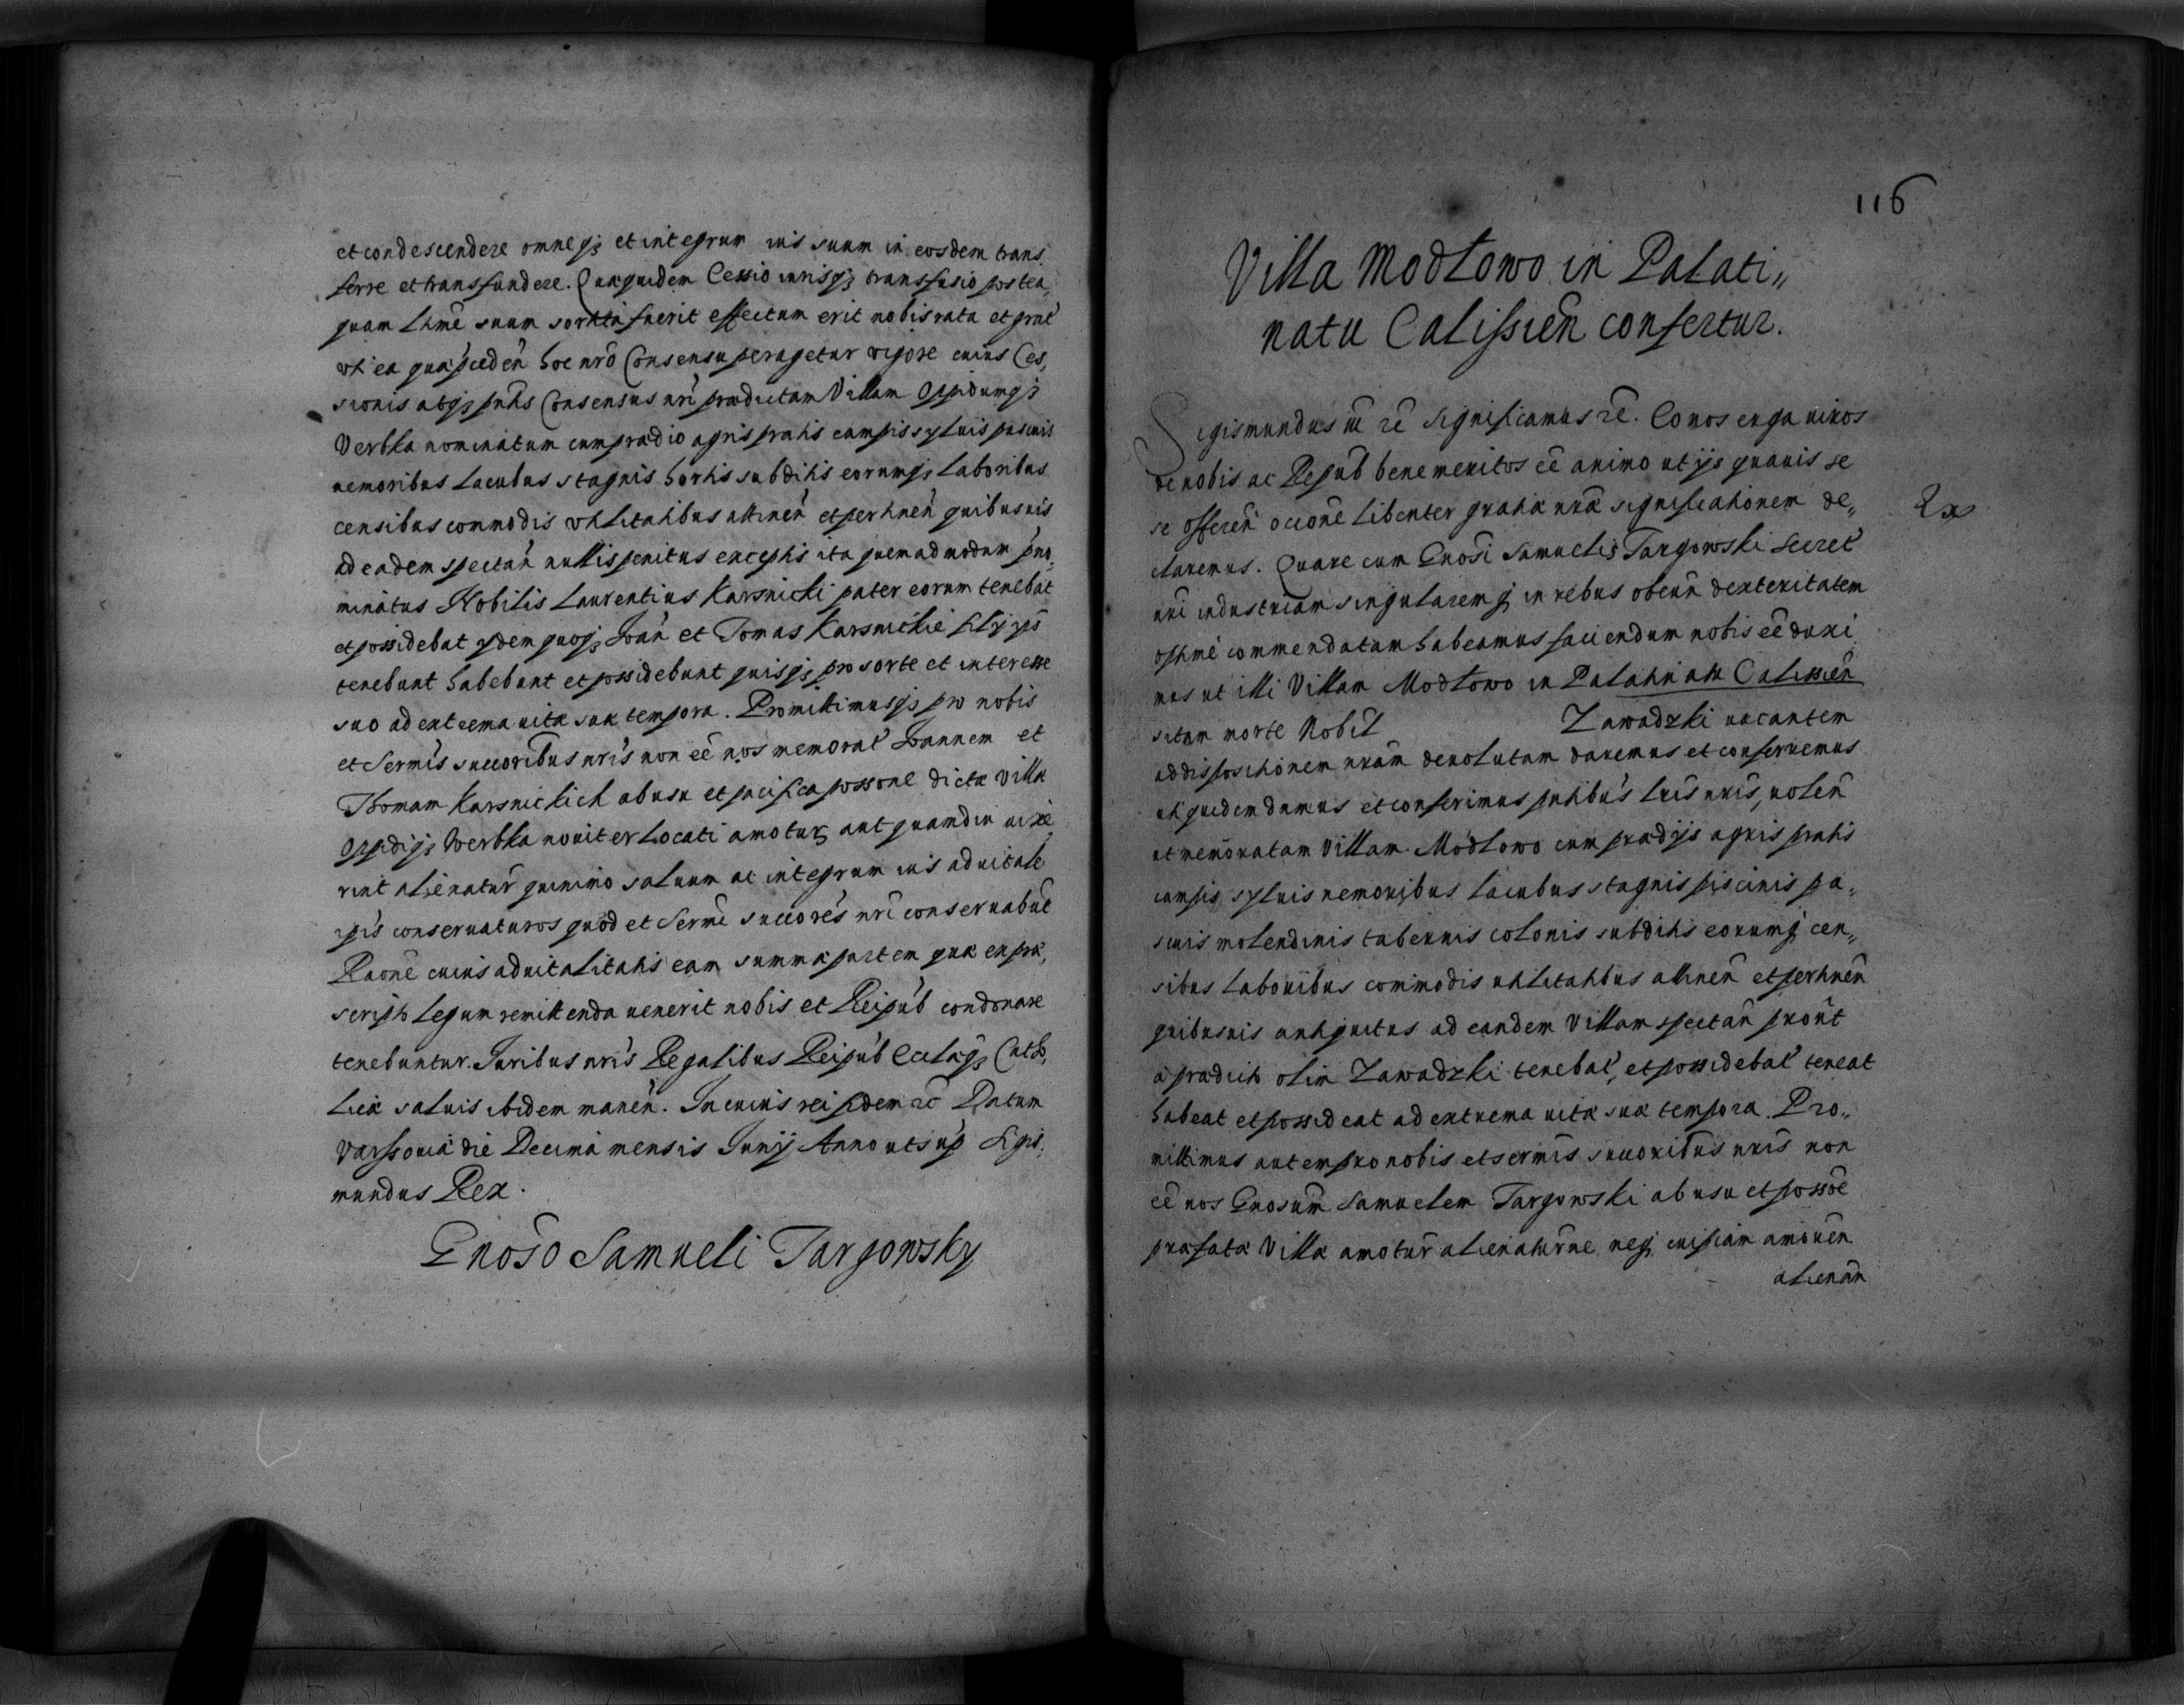 et condescendere omneq₃ et integrum ius suum in eosdem trans,
ferre et transfundere. Quaquidem Cessio iurisq₃ transfusio postea,
quam ltime suum sortita fuerit effectum erit nobis rata et grat
vti ea quæ præceden hoc nro Consensu peragetur vigore cuius Ces,
sionis atq₃ pntis Consensus nri prædictam Villam Oppidumq₃
Verbka nominatum cum prædio agris pratis campis syluis pascuis
nemoribus lacubus stagnis hortis subditis eorumq₃ laboribus
censibus commodis vtilitatibus attinen et pertinen quibusuis
ad eadem spectan nullis penitus exceptis ita quemadmodum pno,
minatus Nobilis Laurentius Karsnicki pater eorum tenebat
et possidebat ydem quoq₃ Ioan et Tomas Karsnickie filij ips
tenebunt habebunt et possidebunt quisq₃ pro sorte et interesse
suo ad extrema uitæ suæ tempora. Promittimusq₃ pro nobis
et Sermis succoribus nris non ee nos memorat Ioannem et
Thomam Karsnickich ab usu et pacifica possone dictæ Villæ
Oppidiq₃ Werbka nouiter locati amoturos aut quamdiu uixe,
rint alienatur quinimo saluum ac integrum ius aduitale
ipis conseruaturos quod et Serme succores nri conseruabut
Raone cuius aduitalitatis eam summæ partem quæ ex præ,
scripto legum remittenda uenerit nobis et Reipub condonare
tenebuntur. Iuribus nris Regalibus Reipub Ecclæq₃ Catho,
licæ saluis ibidem manen. In cuius rei fidem ɾc Datum
Varssouiæ die Decima mensis Iunij Anno ut sup Sigis,
mundus Rex.
Gnoso Samueli Targowsky
116
Villa Modłowo in Palati,,
natu Calissien confertur.
Sigismundus III ɾc Significamus ɾc. Eo nos erga uiros
de nobis ac Repub bene meritos ee animo ut ijs quauis se
se offeren occone libenter gratiæ nræ significationem de,,
claremus. Quare cum Gnosi Samuelis Targowski Secret
nri industriam singularemq₃ in rebus obeun dexteritatem
optime commendatam habeamus faciendum nobis ee duxi
mus ut illi Villam Modłowo in Palatinatu Calissien
sitam morte Nobil Zawadzki uacantem
ad dispositionem nram deuolutam daremus et conferremus
uti quidem damus et conferimus pntibus lris nris, uolen
ut memoratam Villam Modłowo cum prædijs agris pratis
campis syluis nemoribus lacubus stagnis piscinis pa,
scuis molendinis tabernis colonis subditis eorumq₃ cen,,
sibus laboribus commodis utilitatibus attinen et pertinen
quibusuis antiquitus ad eandem Villam spectan prout
a prædicto olim Zawadzki tenebat, et possidebat teneat
habeat et possideat ad extrema uitæ suæ tempora. Pro,,
mittimus autem pro nobis et sermis succoribus nris non
ee nos Gnosum Samuelem Targowski ab usu et possoe
præfatæ Villæ amotur alienaturue neq₃ cuipiam amouen
alienan